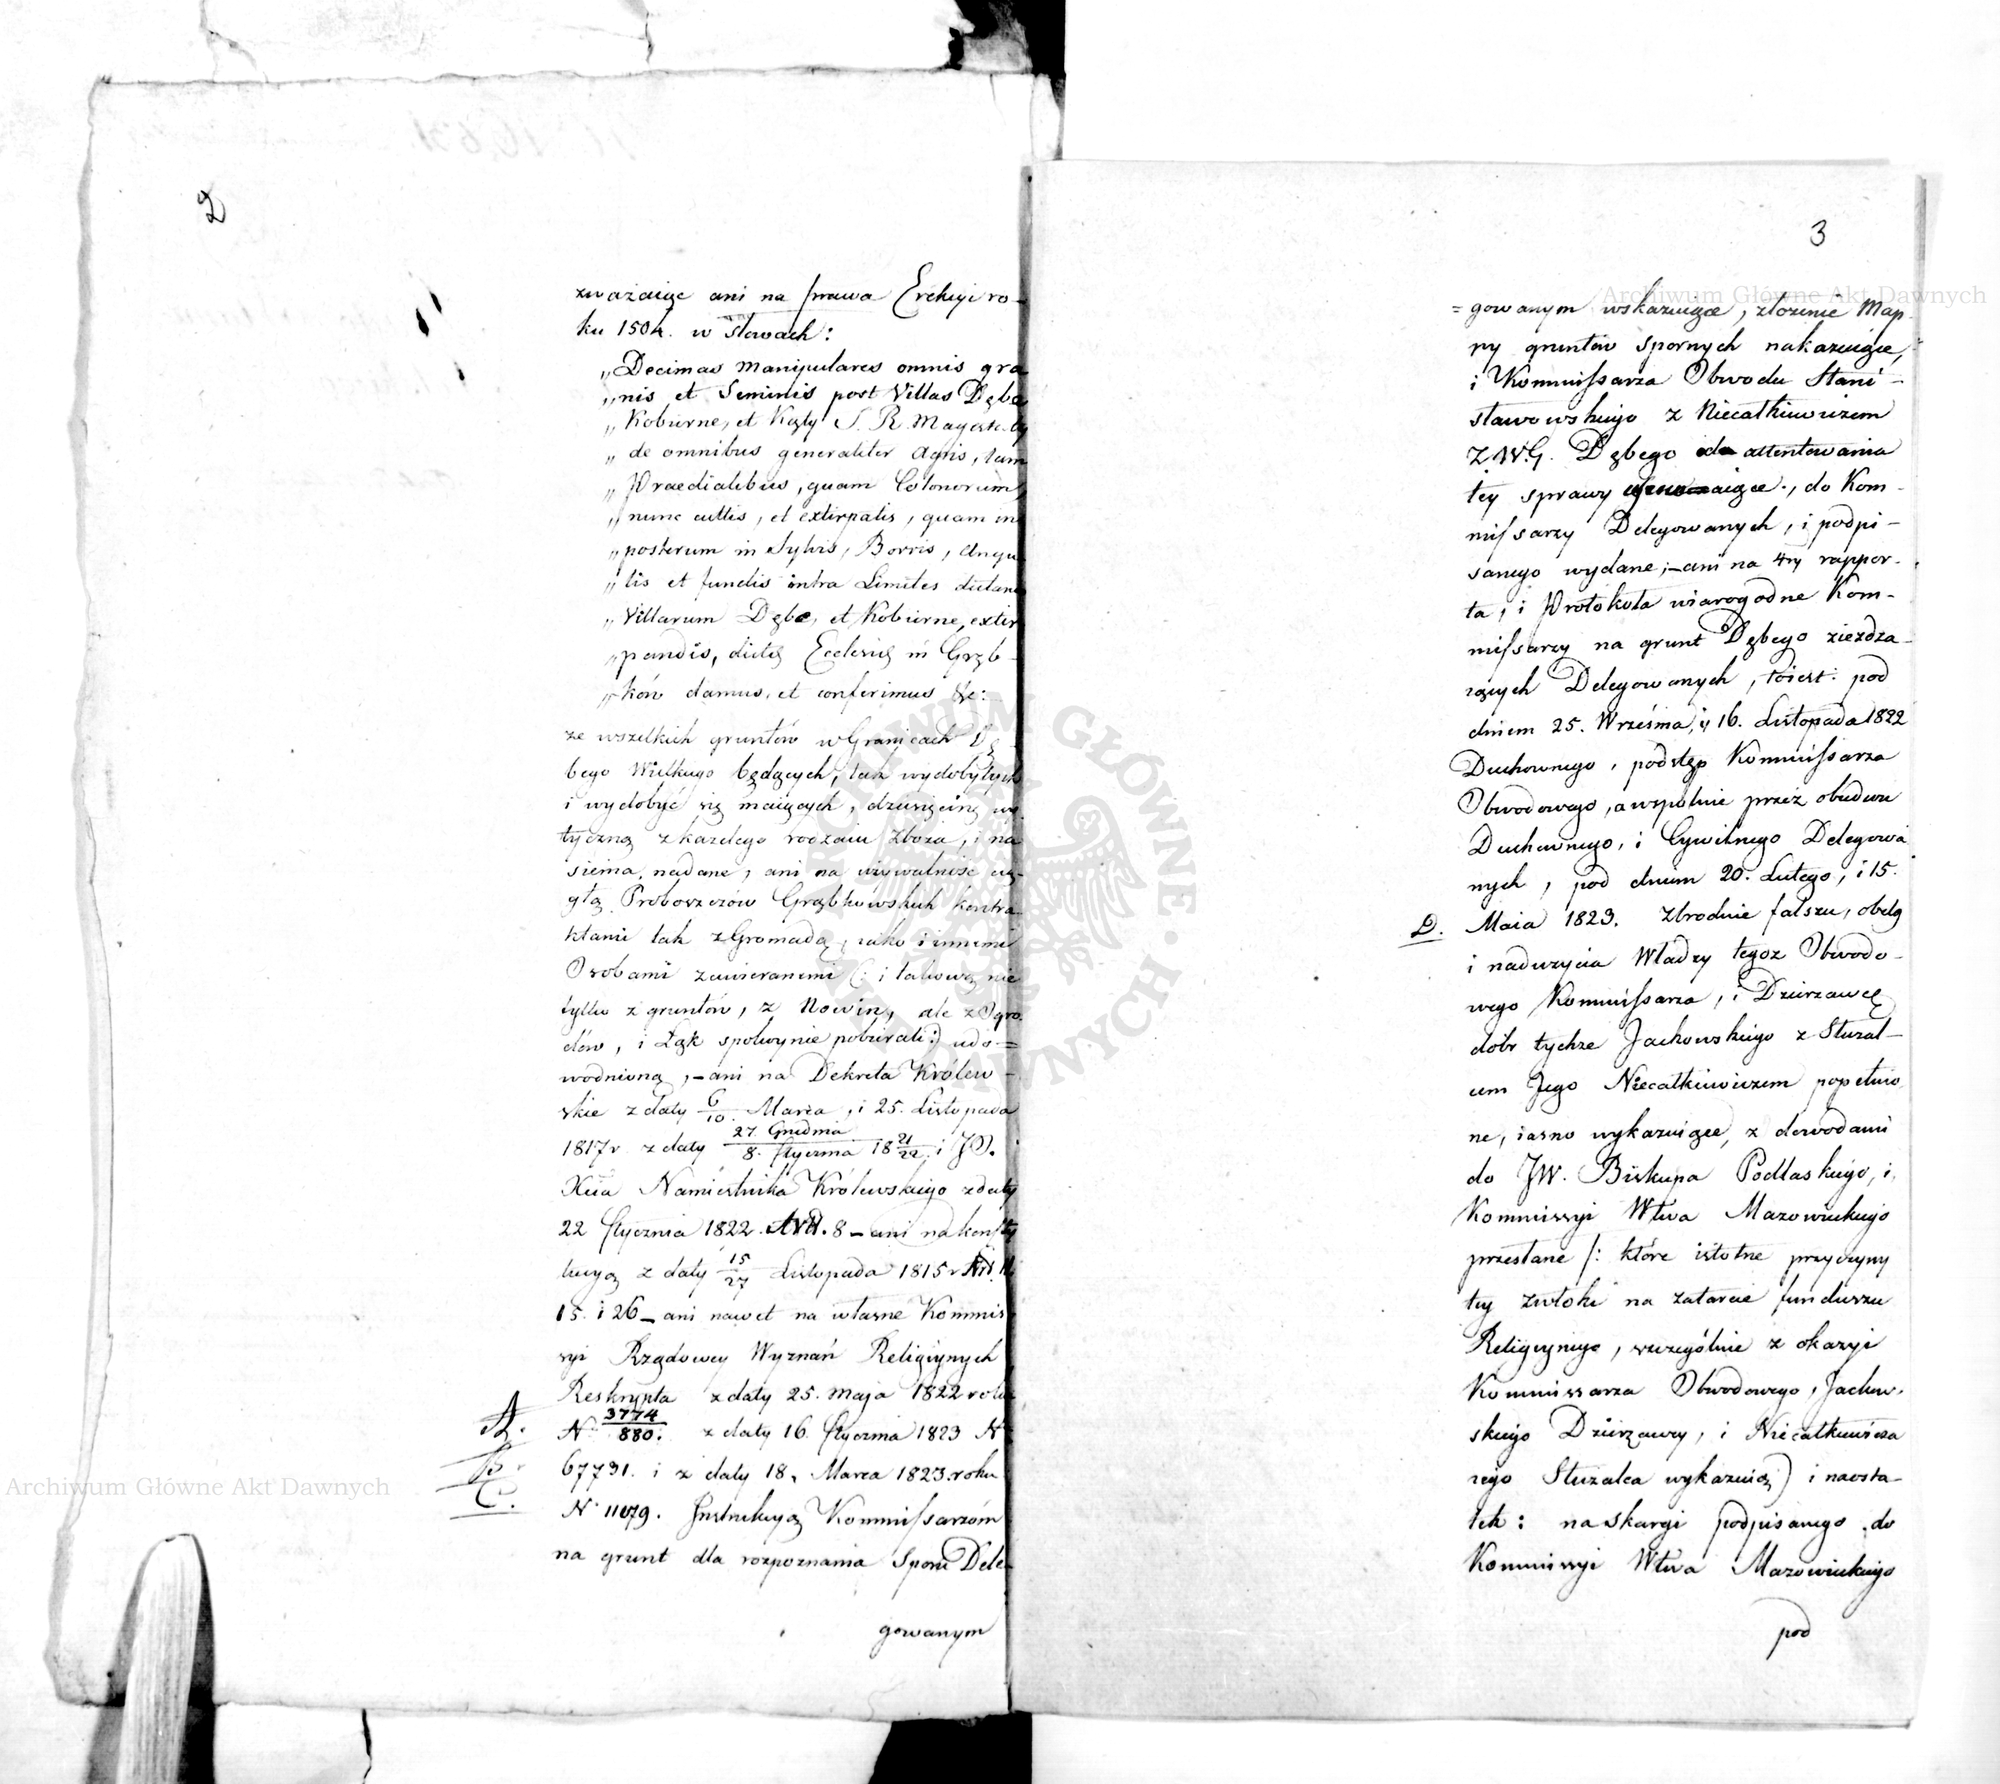 2
zważaiąc ani na prawa Erekcyi ro-
ku 1504. w słowach:
„Decimas manipulares omnis gra
„nis et Seminis post Villas Dębe
„Kobierne, et Kąty S. R. Majestaty
„de omnibus generaliter Agris, tam
„Praedialibus, quam Colonorum,
„nunc cultis, et extirpatis, quam in
„posterum in Sylvis, Borris, Angu
„lis et fundis intra Limites dictarum
„Villarum Dębe, et Kobierne, extir
„pandis, dictę Ecclesię in Gręb-
„ków damus, et conferimus &c:
ze wszelkich gruntów w Granicach Dę-
bego Wielkiego będących, tak wydobytych
i wydobyć się maiących, dziesięcinę wy
tyczną z każdego rodzaiu zboża, i na
sienia, nadane, ani na używalność cią-
głą Proboszczów Grębkowskich kontra-
ktami tak z Gromadą, iako i innemi
Osobami zawieranemi (: i takową nie
tylko z gruntów, z Nowin, ale z Ogro-
dów, i Łąk spokoynie pobierali:) udo=
wodnioną, – ani na Dekreta Królew-
skie z daty 6/10. Marca, i 25. Listopada
1817r z daty 27. Grudnia/8. Stycznia 18 21/22. i JO.
Xcia Namiestnika Królewskiego z daty
22 Stycznia 1822. Art. 8 – ani na konsty
tucyą z daty 15/27 Listopada 1815r Art.
15. i 26 – ani nawet na własne Kommis
syi Rządowey Wyznań Religiynych
Reskrypta z daty 25. Maja 1822 roku
A. N° 3774/880. z daty 16. Stycznia 1823 N°
B. 67731. i z daty 18. Marca 1823. roku
C. N° 11079. Instrukcyą Kommissarzom
na grunt dla rozpoznania Sporu Dele-
gowanym
3
=gowanym wskazuiące, złożenie Map-
py gruntów spornych nakazuiące,
i Kommissarza Obwodu Stani-
sławowskiego z Niecałkiewiczem
Z.W.G. Dębego od attentowania
tey sprawy aiące., do Kom-
missarzy Delegowanych, i podpi-
sanego wydane; – ani na 4ry rappor-
ta, i Protokuła wiarogodne Kom-
missarzy na grunt Dębego zieżdża-
iących Delegowanych, to iest: pod
dniem 25. Września, i 16. Listopada 1822
Duchownego, podstęp Kommissarza
Obwodowego, a wspólnie przez obudwu
Duchownego, i Cywilnego Delegowa
nych, pod dniem 20. Lutego, i 15.
D. Maia 1823. Zbrodnie fałszu, obelg
i nadużycia Władzy tegoż Obwodo-
wego Kommissarza, i Dzierżawcę
dóbr tychże Jackowskiego z Stuzal-
cem Jego Niecałkiewiczem popełnio
ne, iasno wykazuiące, z dowodami
do JW. Biskupa Podlaskiego, i,
Kommissyi Wtwa Mazowieckiego
przesłane /: które istotne przyczyny
tey zwłoki na zatarcie funduszu
Religiynego, szczególnie z okazyi
Kommissarza Obwodowego, Jackow-
skiego Dzierżawcy, i Niecałkiewicza
iego Stużalca wykazuią) i naosta-
tek: na skargi podpisanego do
Kommissyi Wtwa Mazowieckiego
pod
Archiwum Główne Akt Dawnych
Archiwum Główne Akt Dawnych
ARCHIWUM GŁÓWNE AKT DAWNYCH